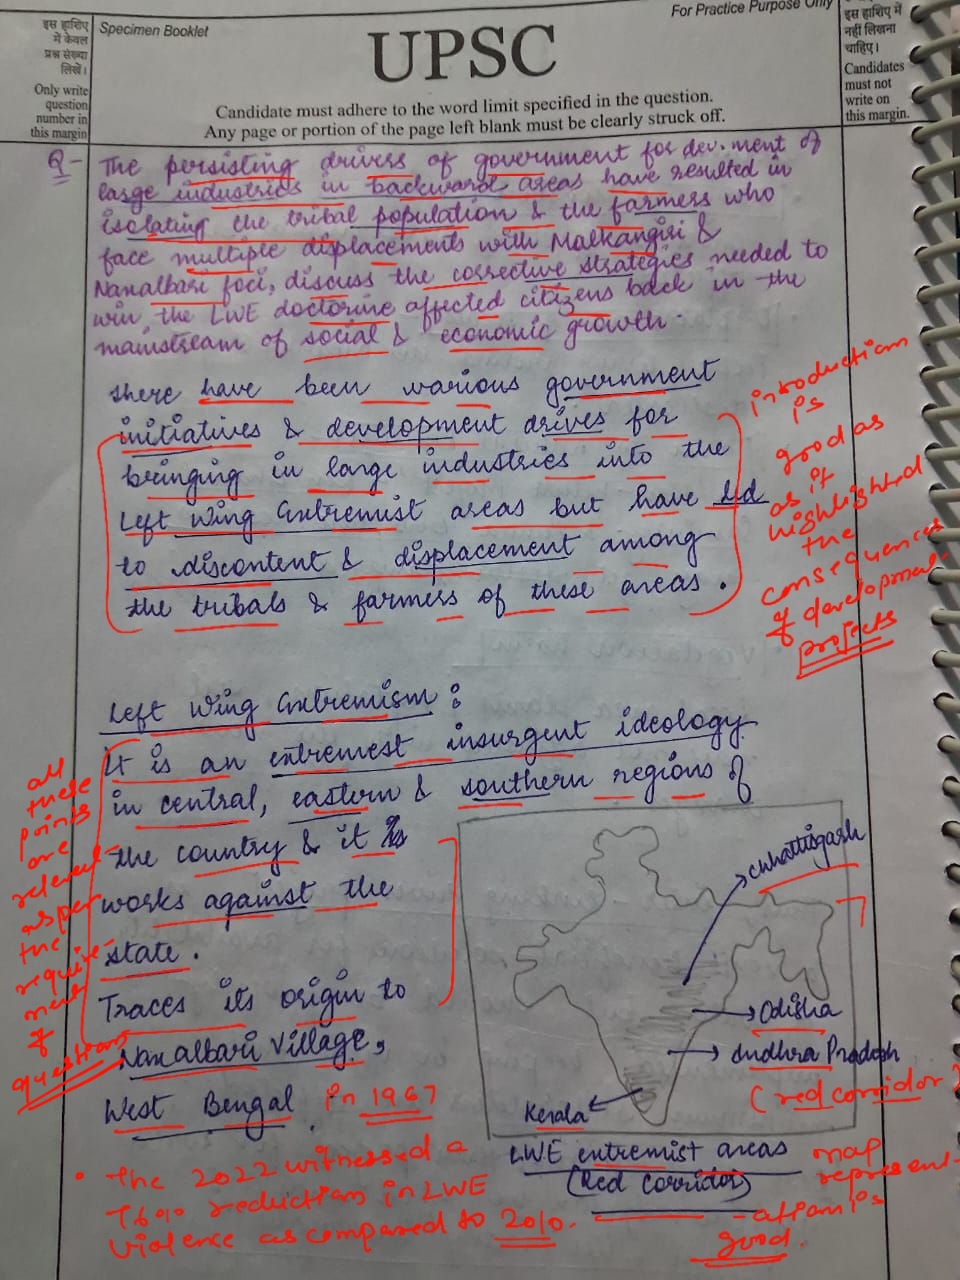 इस हाशिए
में केवल
प्रश्न संख्या
लिखें।
Only write
question
number in
this margin
Specimen Booklet
For Practice Purpose Only
UPSC
Candidate must adhere to the word limit specified in the question.
Any page or portion of the page left blank must be clearly struck off.
इस हाशिए में
नहीं लिखना
चाहिए।
Candidates
must not
write on
this margin.
Q- The persisting drives of government for dev.ment of
large industries in backward areas have resulted in
isolating the tribal population & the farmers who
face multiple displacements with Malkangiri &
Naxalbari foci, discuss the corrective strategies needed to
win the LWE doctorine affected citizens back in the
mainstream of social & economic growth.
There have been various government
initiatives & development drives for
bringing in large industries into the
Left Wing Extremist areas but have led
to discontent & displacement among
the tribals & farmers of these areas.
introduction
is
good as
as it
highlighted
the
consequences
of development
projects
Left Wing Extremism :
It is an extremest insurgent ideology
in central, eastern & southern regions of
the country & it is
works against the
state.
Traces its origin to
Naxalbari Village,
West Bengal in 1967
all
these
points
are
relevent
as per
the
require-
ment
of
question
Chhattisgarh
Odisha
Andhra Pradesh
(red corridor)
Kerala
LWE extremist areas
(Red corridor)
map
represent-
-ation is
good.
• The 2022 witnessed a
76% reduction in LWE
violence as compared to 2010.